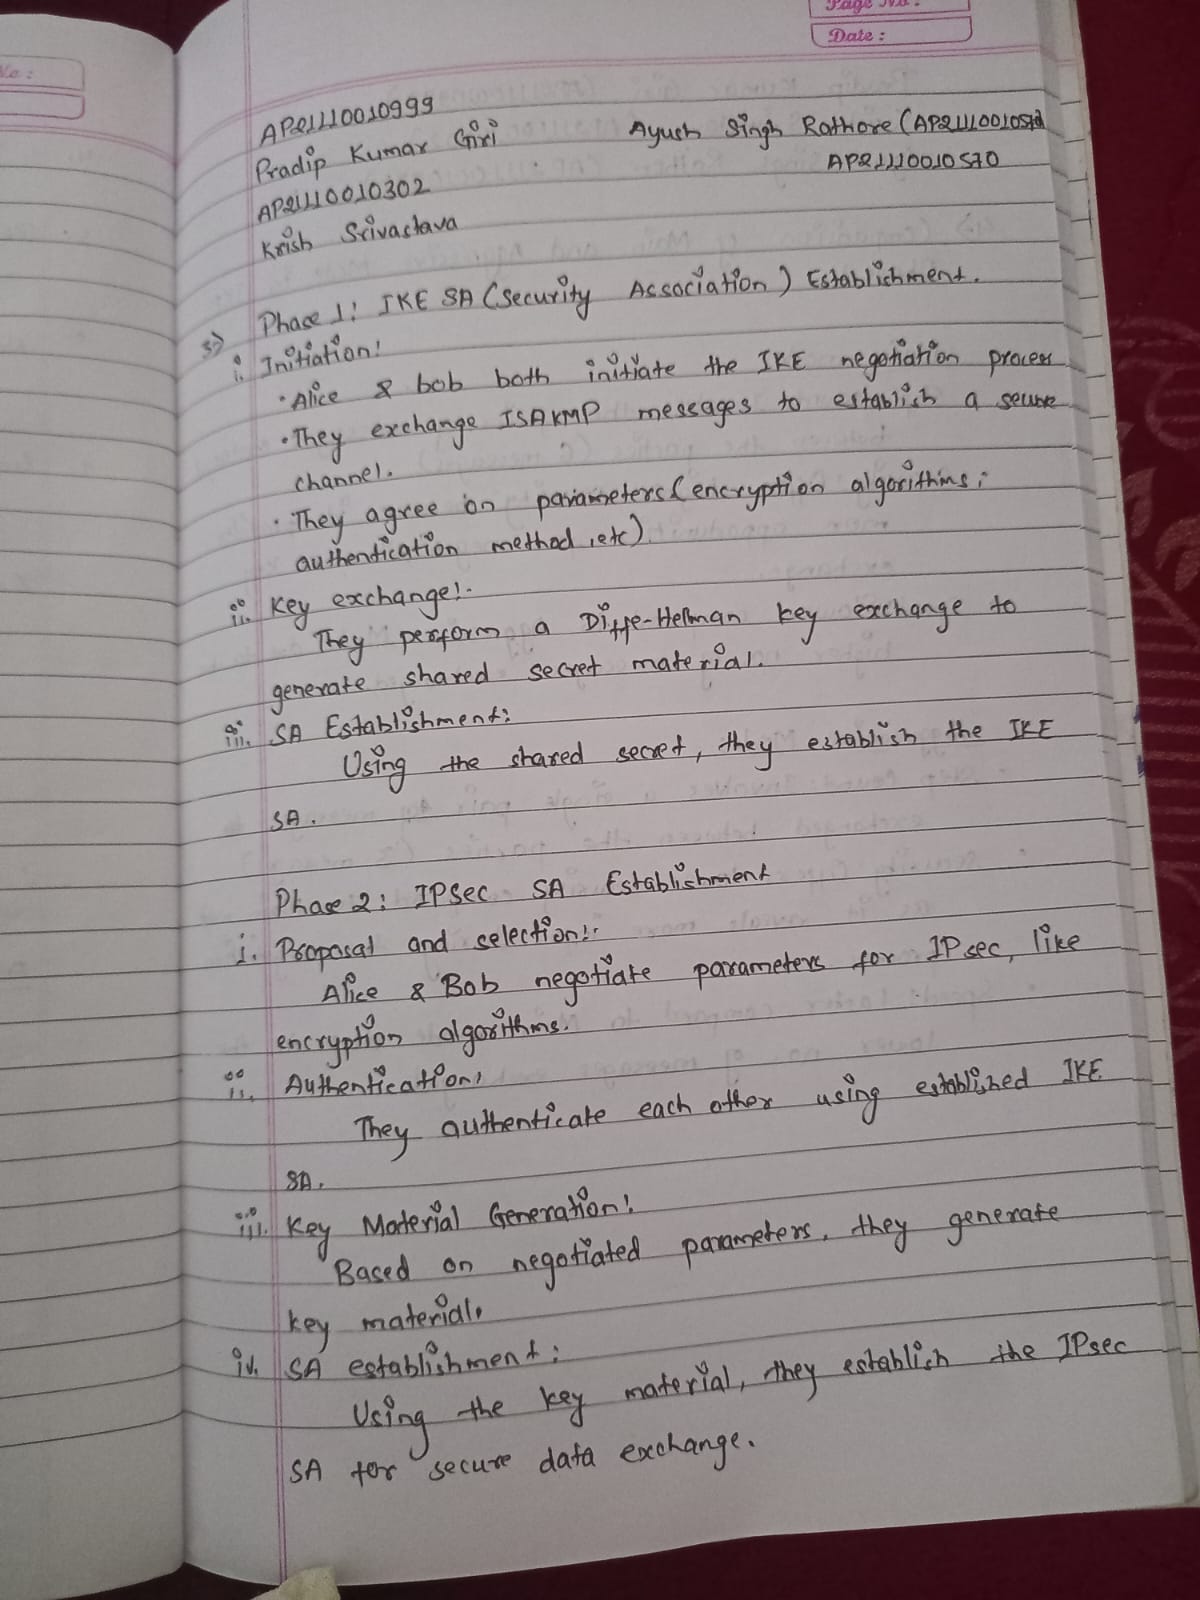 Page No :
Date :
No :
AP21110010999
Pradip Kumar Giri
Ayush Singh Rathore (AP21110010570)
AP21110010302
AP21110010570
Krish Srivastava
Phase 1: IKE SA (Security Association) Establishment.
i. Initiation:
• Alice & bob both initiate the IKE negotiation process
• They exchange ISAKMP messages to establish a secure
channel.
• They agree on parameters (encryption algorithms,
authentication method, etc).
ii. Key exchange:-
They perform a Diffe-Hellman key exchange to
generate shared secret material.
iii. SA Establishment:
Using the shared secret, they establish the IKE
SA.
Phase 2: IPsec SA Establishment
i. Proposal and selection:-
Alice & Bob negotiate parameters for IPsec, like
encryption algorithms.
ii. Authentication:
They authenticate each other using established IKE
SA.
iii. Key Material Generation:
Based on negotiated parameters, they generate
key material.
iv. SA establishment:
Using the key material, they establish the IPsec
SA for secure data exchange.